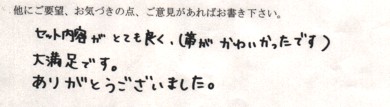 他にご要望、お気づきの点、ご意見があればお書き下さい。
セット内容がとても良く、(帯がかわいかったです)
大満足です。
ありがとうございました。